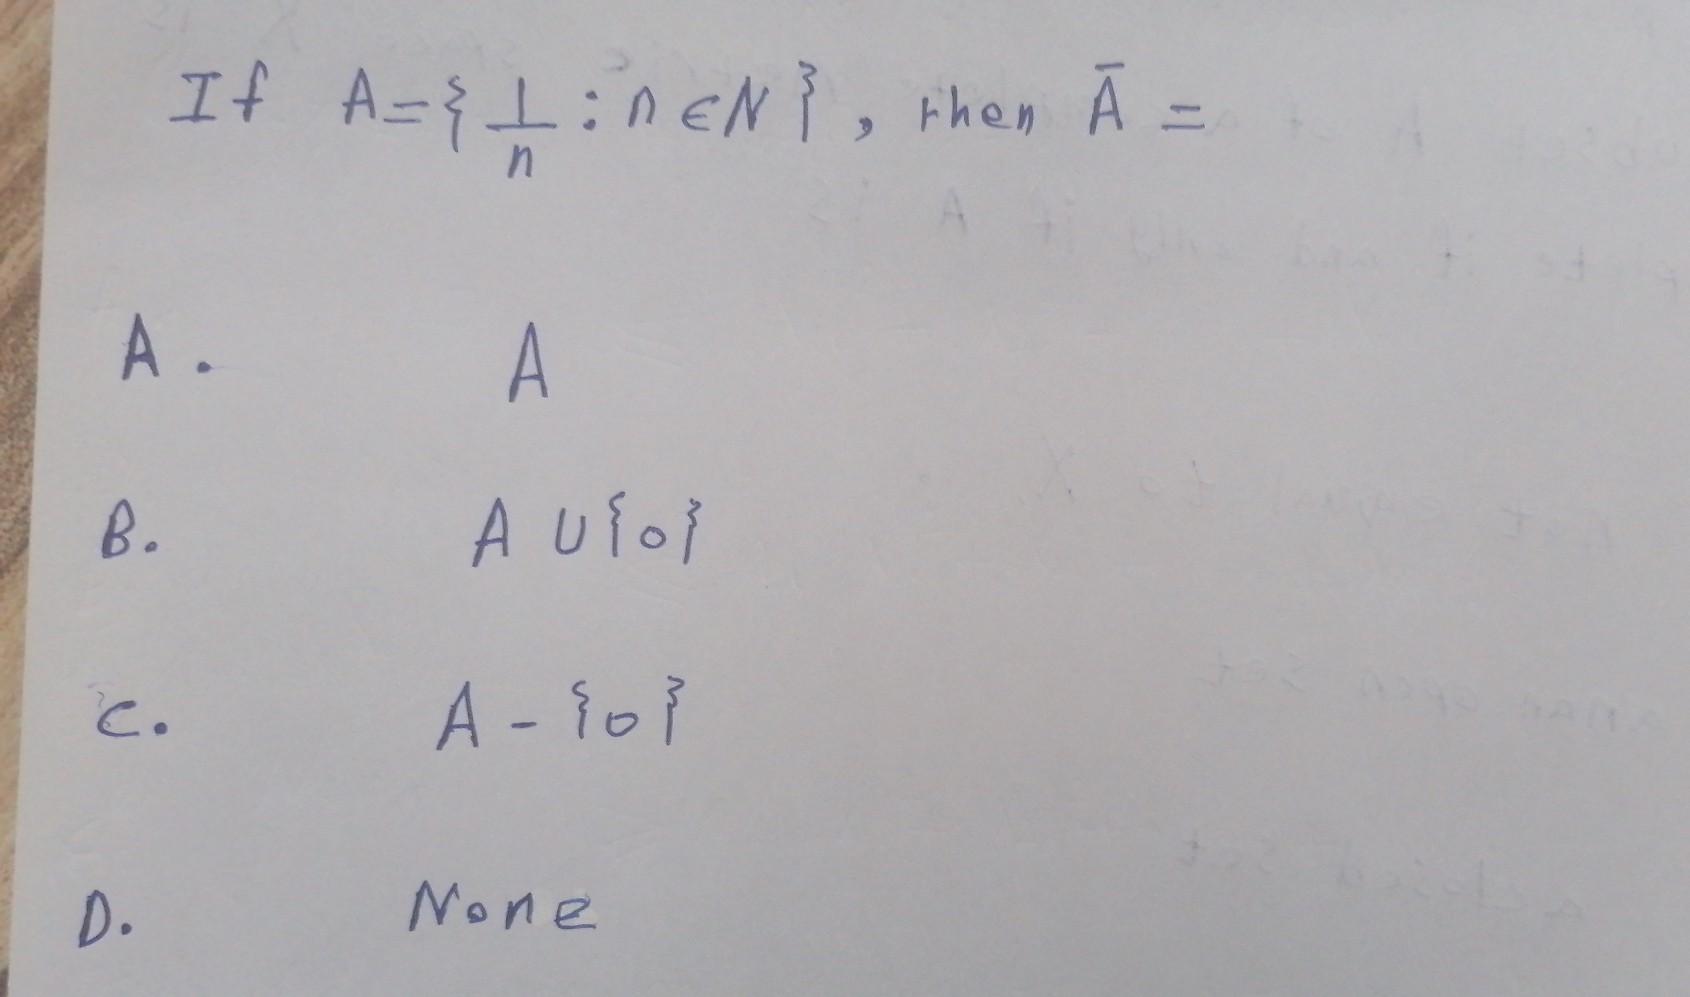 If A={1/n : n ∈ N}, then Ā =
A. A
B. A ∪ {0}
C. A - {0}
D. None